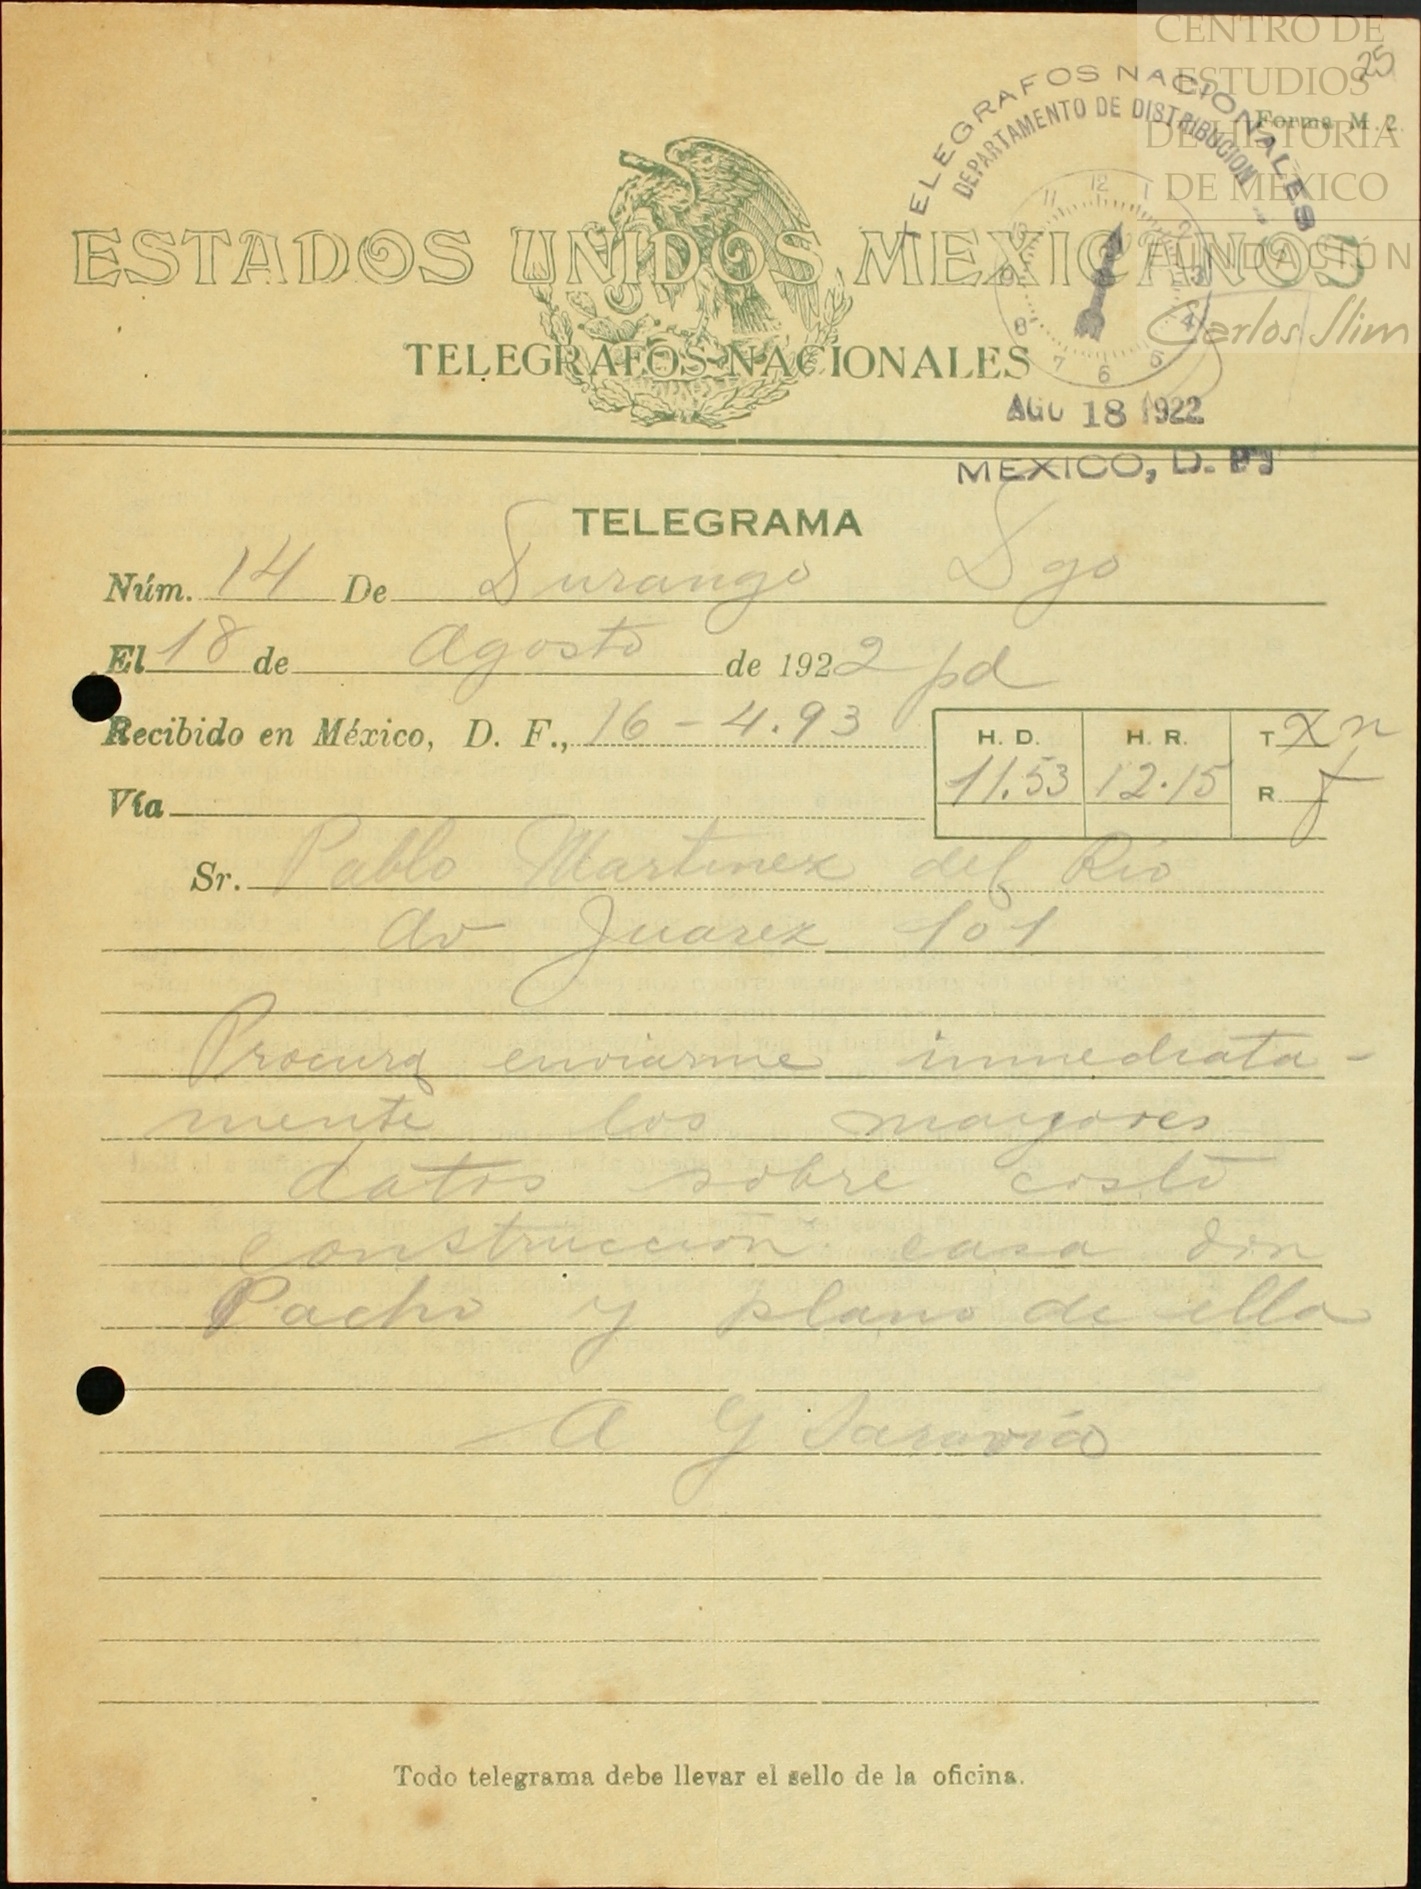 CENTRO DE
ESTUDIOS
DE HISTORIA
DE MÉXICO
FUNDACIÓN
Carlos Slim
25
Forma M. 2.
TELEGRAFOS NACIONALES
DEPARTAMENTO DE DISTRIBUCION
12 1 2 3 4 5 6 7 8 9 10 11
ESTADOS UNIDOS MEXICANOS
TELEGRAFOS NACIONALES
AGO 18 1922
MEXICO, D. F.
TELEGRAMA
Núm. 14 De Durango Dgo
El 18 de Agosto de 1922 pd
Recibido en México, D. F., 16 - 4.93
H. D. H. R. T. Xn
11.53 12.15 R.
Vía
Sr. Pablo Martinez del Rio
Av Juarez 101
Procura enviarme inmediata-
mente los mayores
datos sobre costo
construccion casa don
Pacho y plano de ella
A G Saravia
Todo telegrama debe llevar el sello de la oficina.